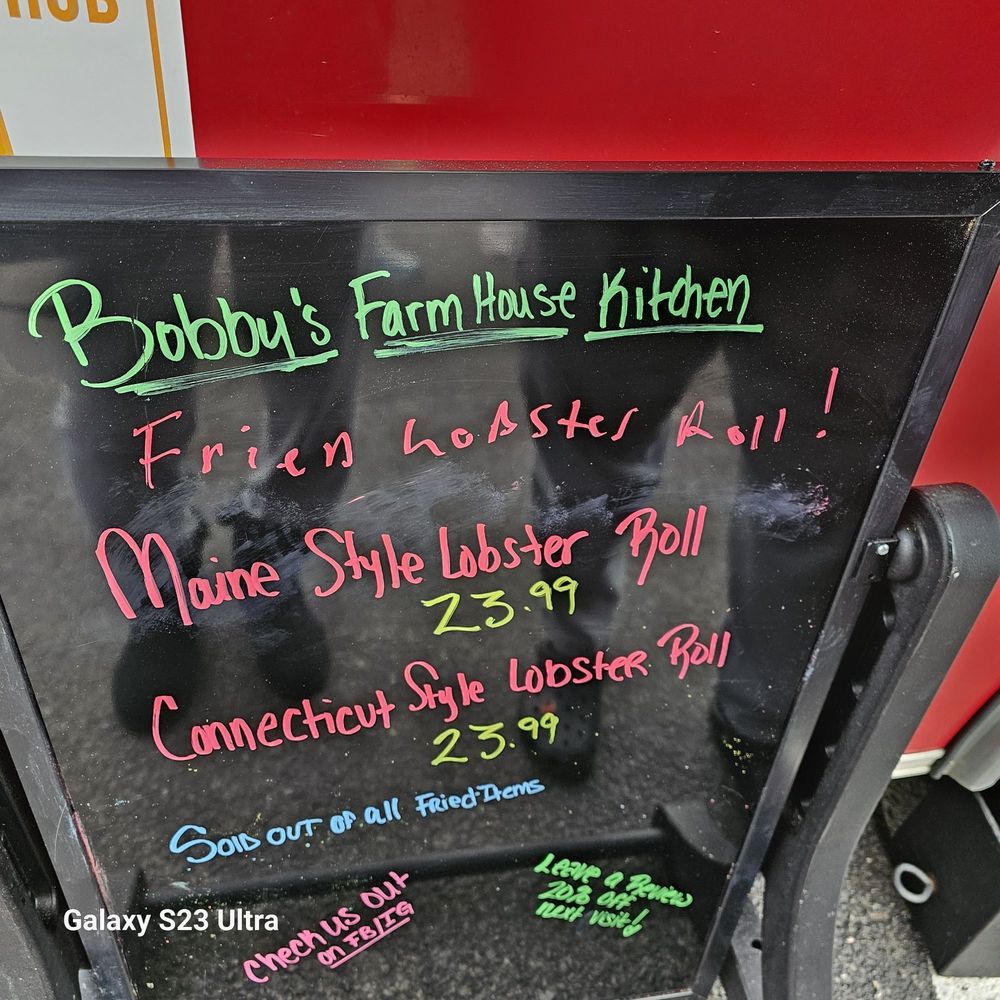 HUB
Bobby's Farm House Kitchen
Frien Lobster Roll!
Maine Style Lobster Roll
23.99
Connecticut Style Lobster Roll
23.99
Sold out of all Fried Items
check us out
on FB/IG
Leave a Review
20% off
next visit!
Galaxy S23 Ultra